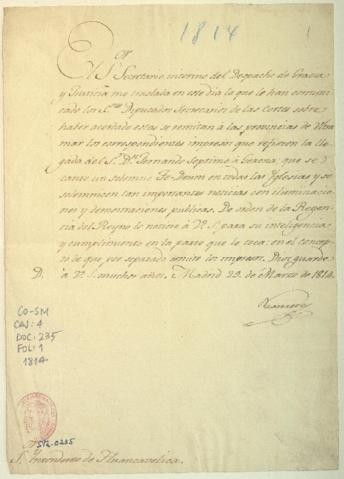 1814
1
El S.or Secretario interino del Despacho de Gracia
y Justicia me traslada en este dia lo que le han comuni
cado los S.res Diputados Secretarios de las Cortes sobre
haber acordado estas se remitan á las provincias de Ultra
mar los correspondientes impresos que refieren la lle
gada del S.r D.n Fernando Septimo á Gerona, que se
cante un solemne Te-Deum en todas las Iglesias y se
solemnicen tan importantes noticias con iluminacio
nes y demostraciones publicas. De orden de la Regen
cia del Reyno lo noticio á V.S. para su inteligencia
y cumplimiento en la parte que le toca: en el concep
to de que por separado remito los impresos. Dios guarde
á V.S. muchos años. Madrid 29 de Marzo de 1814.
CO-SM
CAJ: 4
DOC: 235
FOL: 1
1814
S.r Intendente de Huancavelica.